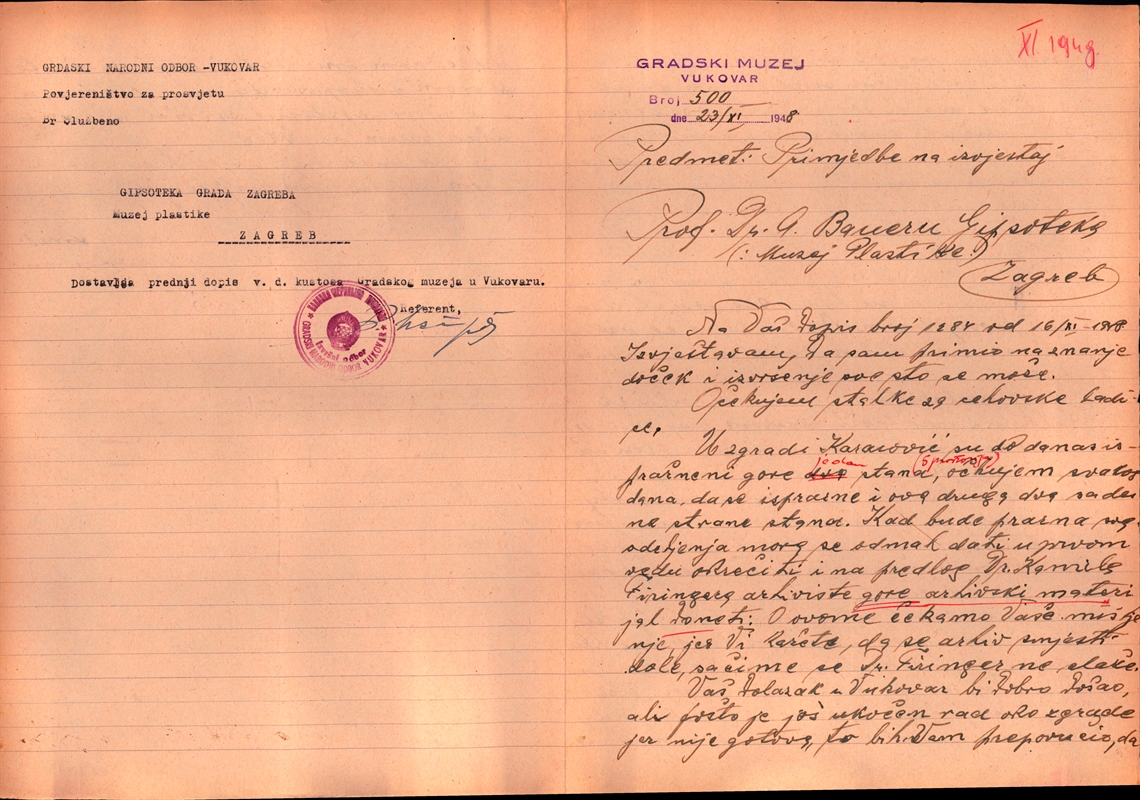 GRDASKI NARODNI ODBOR -VUKOVAR
Povjereništvo za prosvjetu
Br Službeno
GIPSOTEKA GRADA ZAGREBA
Muzej plastike
ZAGREB
Dostavlja prednji dopis v. d. kustosa Gradskog muzeja u Vukovaru.
Referent,
GRADSKI NARODNI ODBOR VUKOVAR
Izvršni odbor
XI. 1948.
GRADSKI MUZEJ
VUKOVAR
Broj 500
dne 23/XI 1948
Predmet: Primjedbe na izvještaj
Prof. Dr. A. Baueru Gipsoteka
(: Muzej Plastike:)
Zagreb
Na Vaš Dopis broj 1284 od 16/XI-1948
Izvještavam, da sam primio na znanje
doček i izvršenje sve što se može.
Očekujem stalke za cehovske ladi-
ce.
U zgradi Karaović su do danas is-
jedan (5 prostorija)
pražneni gore dva stana, očekujem svakog
dana, da se isprazne i ova druga dva sa des
ne strane stana. Kad bude prazna sva
odeljenja mora se odmah dati u prvom
redu okrečiti i na predlog Dr. Kamila
Firingera arhiviste gore arhivski materi
jal doneti. O ovome čekamo Vaše mišlje
nje, jer Vi kažete, da se arhiv smjesti
dole, sačime se Dr. Firinger ne slaže.
Vaš Dolazak u Vukovar bi Dobro Došao,
ali pošto je još ukočen rad oko zgrade
jer nije gotova, to bih Vam preporučio, da